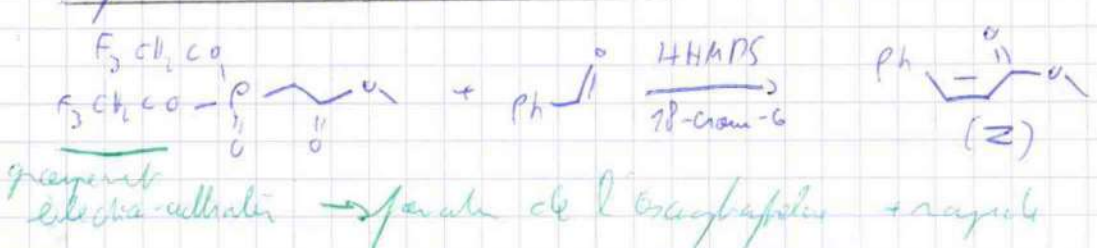 F₃CH₂CO
F₃CH₂CO - P O O O + Ph O HHMDS 18-Crown-6 Ph O O (Z)
groupement
électro-attracteur → formation de l'oxaphosphétane + rapide